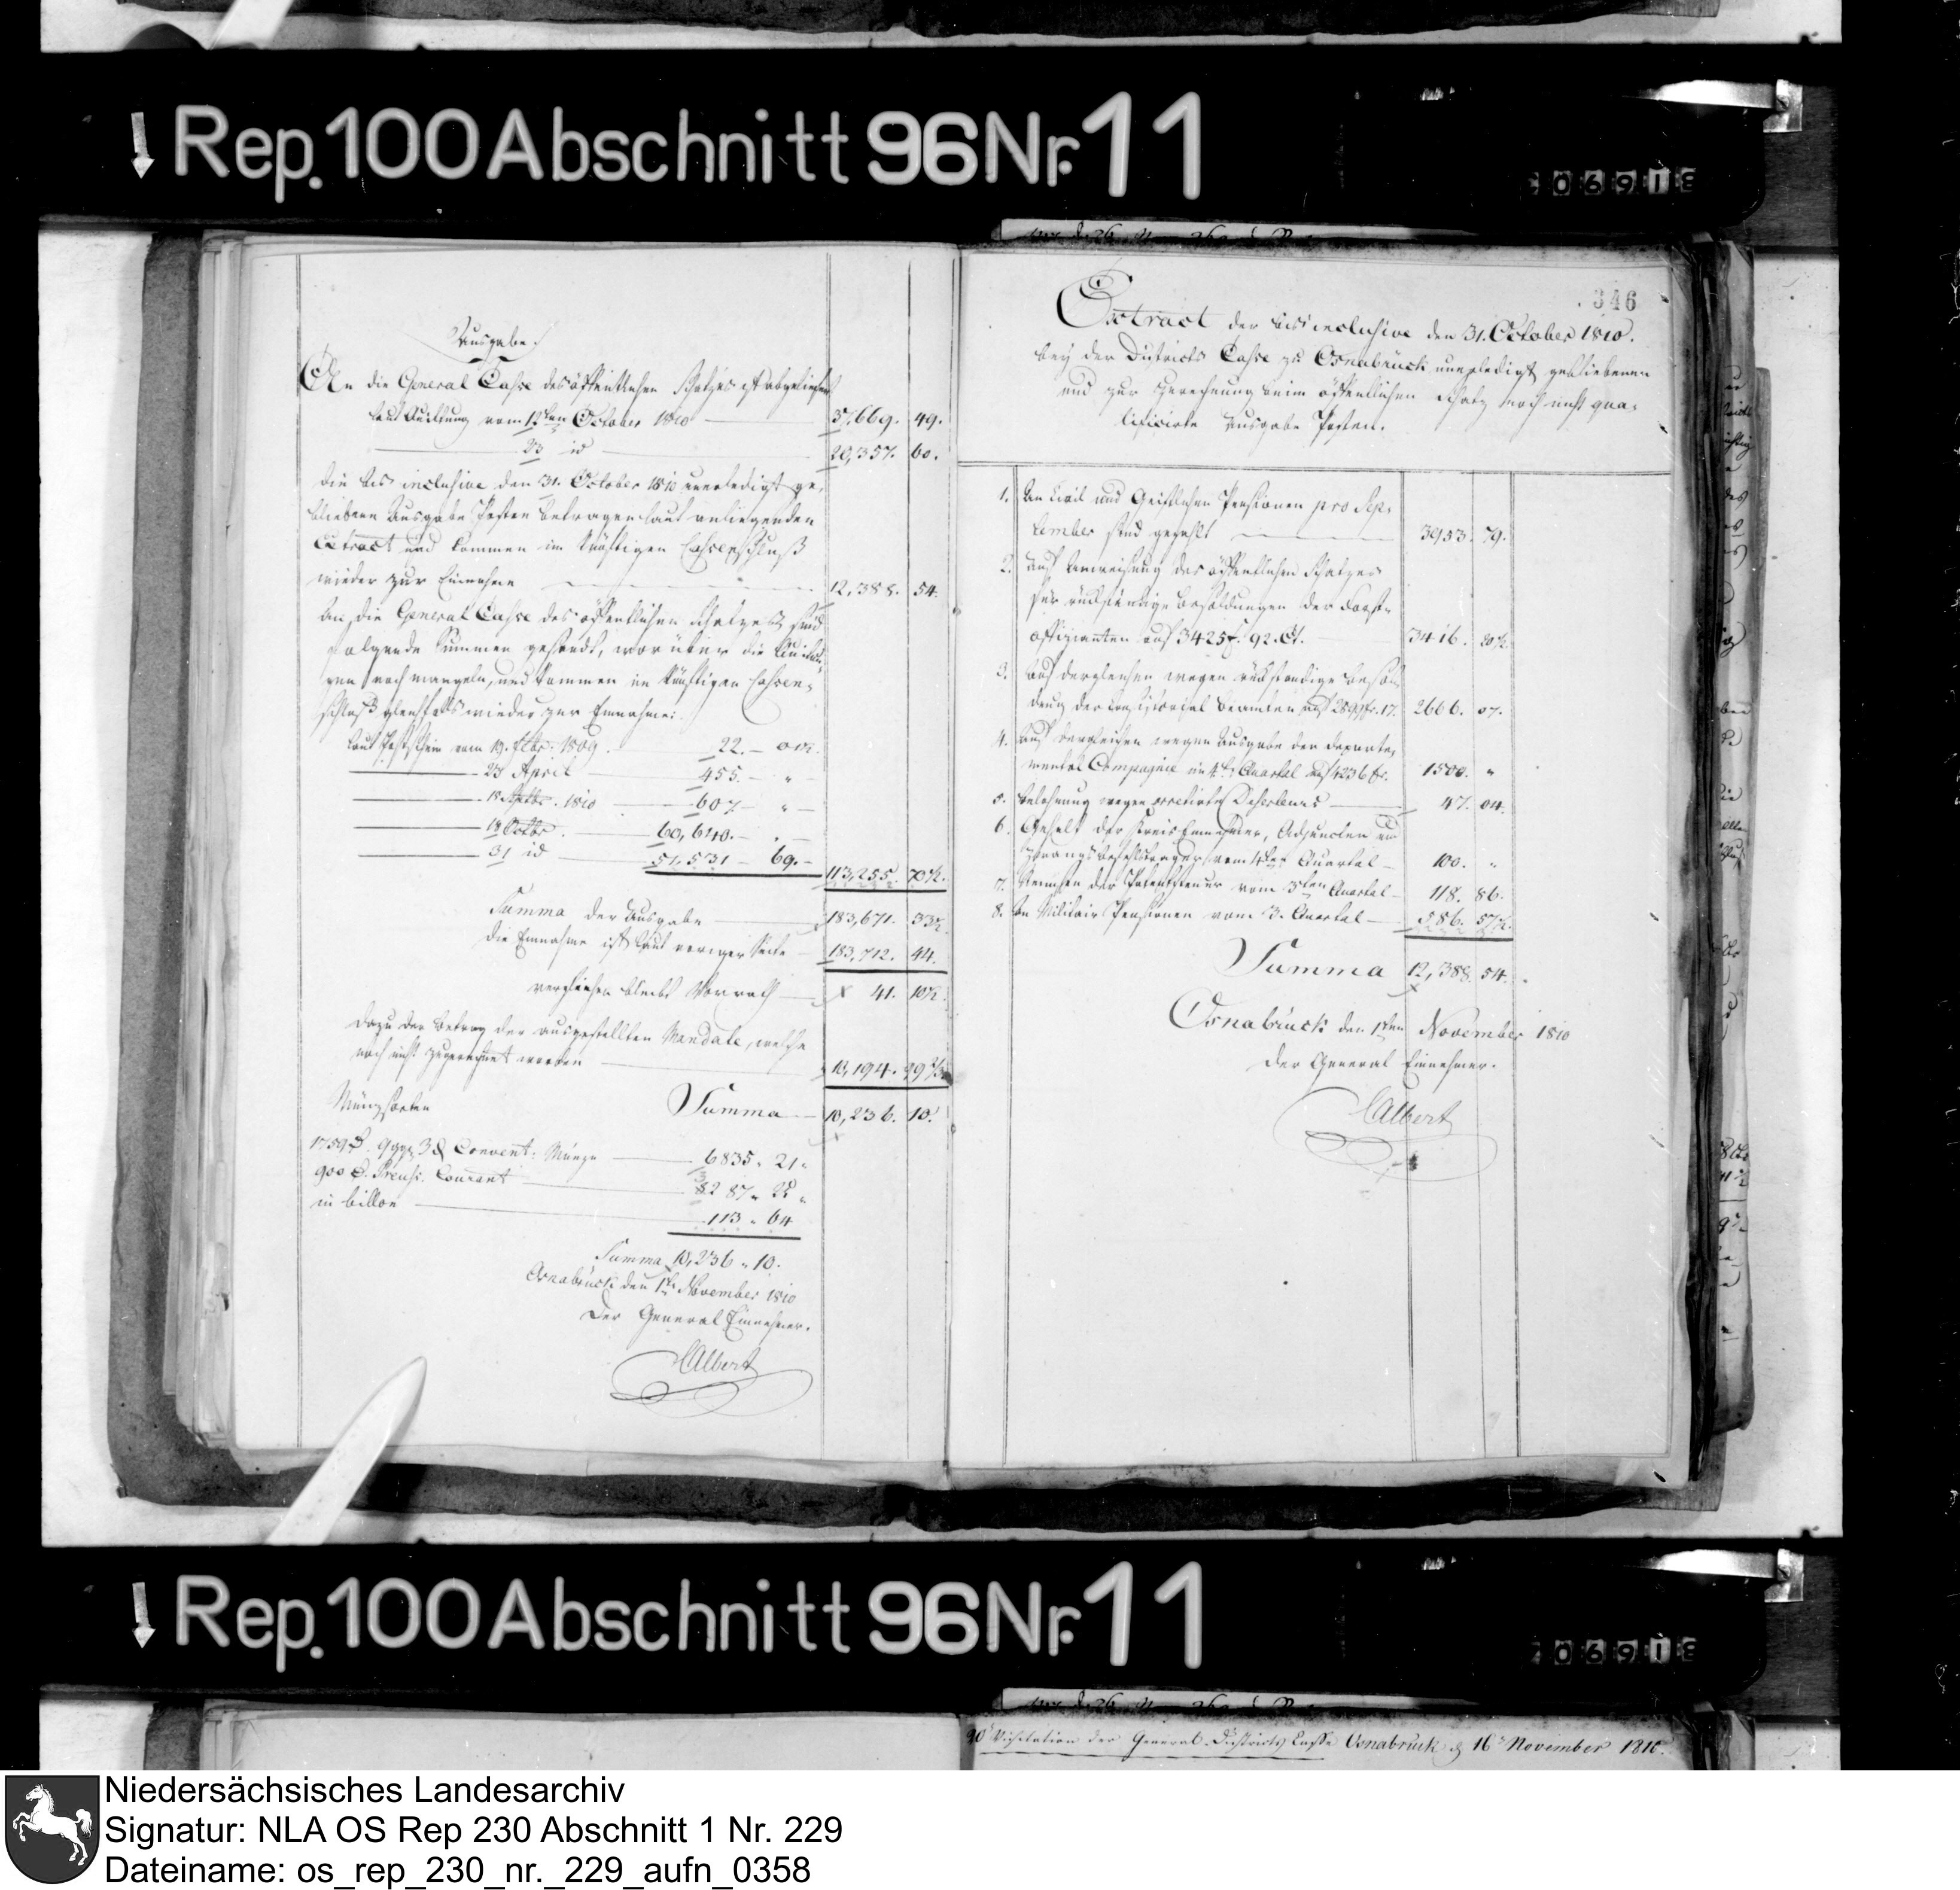 Rep. 100 Abschnitt 96 Nr. 11
Ausgabe.
An die General Casse des öffentlichen Schatzes ist abgeliefert
laut Quittung vom 12ten October 1810 37,669. 49.
23 id 20,357. 60.
Die bis inclusive den 31. October 1810 unerledigt ge-
bliebene Ausgabe Posten betragen laut anliegenden
Extract und kommen im künftigen Cassenschluß
wieder zur Einnahme 12,388. 54.
An die General Casse des öffentlichen Schatzes sind
folgende Summen gesandt, worüber die Quittun-
gen noch mangeln, und kommen im künftigen Cassen-
schluß gleichfalls wieder zur Einnahme:
laut Postschein vom 19. 1809. 22. –
28 April 455. – "
18 Septbr. 1810 607 – "
18 Octbr. 60,640. – . –
31 id 51,531 – 69. –
113,255. 70½.
Summa der Ausgabe 183,671. 33½.
Die Einnahme ist laut voriger Seite 183,712. 44.
verglichen bleibt Vorrath 41. 10½.
Dazu der Betrag der ausgestellten Mandate, welche
noch nicht zugerechnet worden 10,194. 99½
Münzsorten Summa 10,236. 10.
1759 9 ggr 3 Convent: Münze 6835. 21.
900 Preuss. Courant 3287.
in billon 113. 64
Summa 10,236. 10.
Osnabrück den 1ten November 1810
Der General Einnehmer.
CAlbert
346
Extract der bis inclusive den 31. October 1810.
bey der Districts Casse zu Osnabrück unerledigt gebliebenen
und zur Berechnung beim öffentlichen Schatz noch nicht qua-
lificirte Ausgabe Posten.
1. An Civil und Geistlichen Pensionen pro Sep-
tember sind gezahlt 3953. 79.
2. Auf Anweisung des öffentlichen Schatzes
für rückständige Besoldungen der Forst-
offizianten auf 3425 f. 92. Ct. 3416. 20½
3. Auf dergleichen wegen rückständige Besol-
dung der Consistorial Beamten auf 2899 fr. 17. 2666. 07.
4. Auf dergleichen wegen Ausgabe der Departe-
mental Compagnie im 4ten Quartal auf 4236 fr. 1500. "
5. Belohnung wegen arretirter Deserteurs 47. 04.
6. Gehalt der Kreis Einnehmer, Adjuncten und
Zwangsbefehlträger vom 4ten Quartal 100. "
7. Remisen der Patentsteuer vom 3ten Quartal 118. 86.
8. An Militair Pensionen vom 3. Quartal 586. 57½.
Summa 12,388. 54.
Osnabrück den 1ten November 1810
Der General Einnehmer.
CAlbert
Rep. 100 Abschnitt 96 Nr. 11
Visitation der General Districts Casse Osnabrück 16 November 1810.
Niedersächsisches Landesarchiv
Signatur: NLA OS Rep 230 Abschnitt 1 Nr. 229
Dateiname: os_rep_230_nr._229_aufn_0358